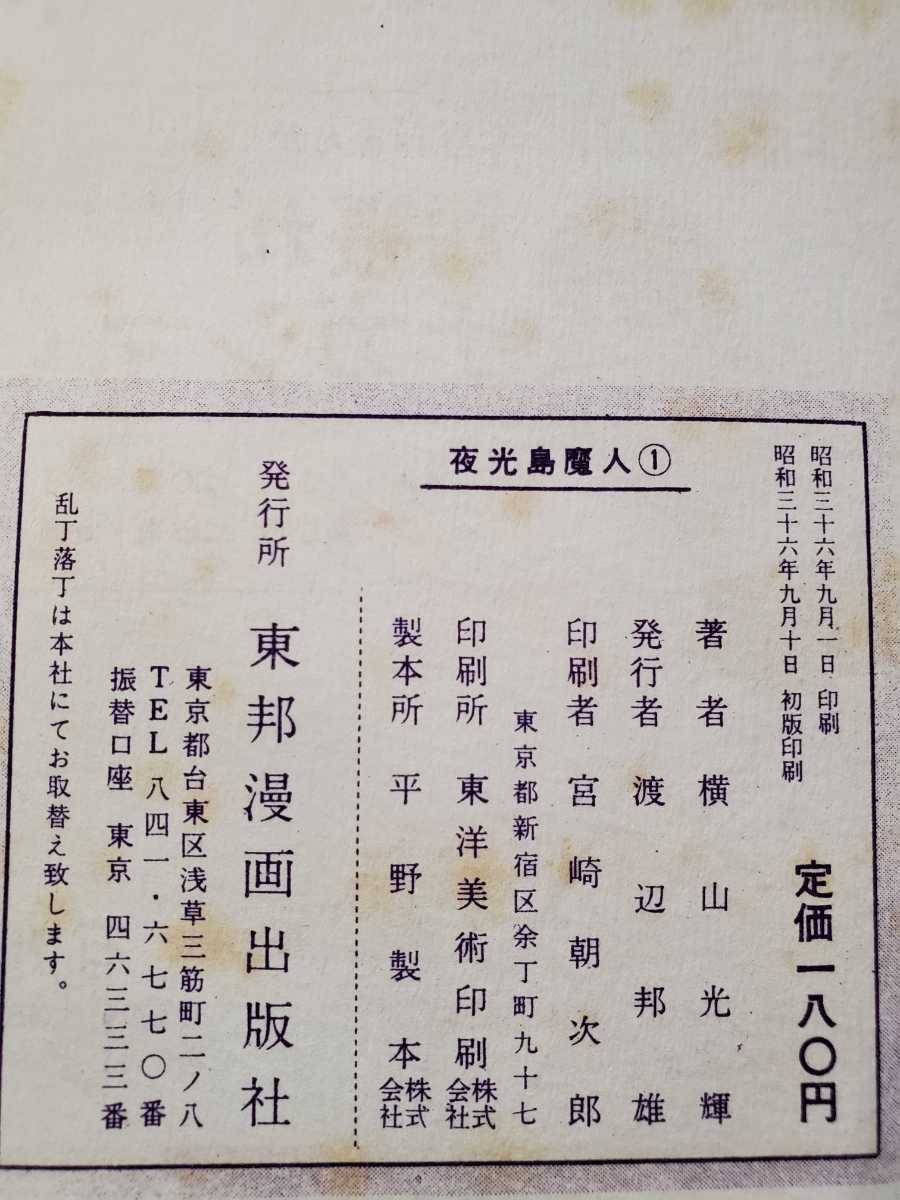 夜光島魔人①
昭和三十六年九月一日 印刷
昭和三十六年九月十日 初版印刷
定価一八〇円
著者 横山光輝
発行者 渡辺邦雄
印刷者 宮崎朝次郎
東京都新宿区余丁町九十七
印刷所 東洋美術印刷株式会社
製本所 平野製本株式会社
発行所 東邦漫画出版社
東京都台東区浅草三筋町二ノ八
TEL 八四一・六七七〇番
振替口座 東京 四六三三三番
乱丁落丁は本社にてお取替え致します。